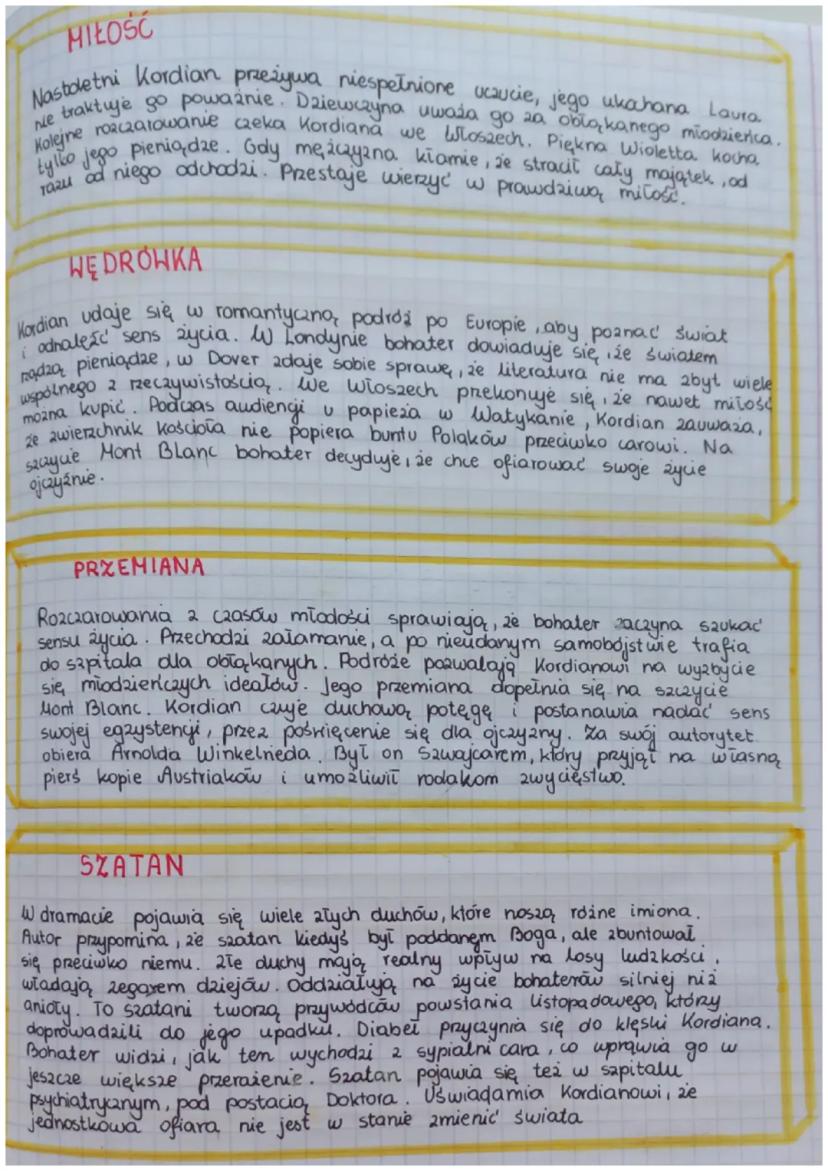 MIŁOŚĆ
Nastoletni Kordian przeżywa niespełnione uczucie, jego ukochana Laura
nie traktuje go poważnie. Dziewczyna uważa go za obłąkanego młodzieńca.
Kolejne rozczarowanie czeka Kordiana we Włoszech. Piękna Wioletta kocha
tylko jego pieniądze. Gdy mężczyzna kłamie, że stracił cały majątek, od
razu od niego odchodzi. Przestaje wierzyć w prawdziwą miłość.
WĘDRÓWKA
Kordian udaje się w romantyczną podróż po Europie, aby poznać świat
i odnaleźć sens życia. W Londynie bohater dowiaduje się, że światem
rządzą pieniądze, w Dover zdaje sobie sprawę, że literatura nie ma zbyt wiele
wspólnego z rzeczywistością. We Włoszech przekonuje się, że nawet miłość
można kupić. Podczas audiencji u papieża w Watykanie, Kordian zauważa,
że zwierzchnik Kościoła nie popiera buntu Polaków przeciwko carowi. Na
szczycie Mont Blanc bohater decyduje, że chce ofiarować swoje życie
ojczyźnie.
PRZEMIANA
Rozczarowania z czasów młodości sprawiają, że bohater zaczyna szukać
sensu życia. Przechodzi załamanie, a po nieudanym samobójstwie trafia
do szpitala dla obłąkanych. Podróże pozwalają Kordianowi na wyzbycie
się młodzieńczych ideałów. Jego przemiana dopełnia się na szczycie
Mont Blanc. Kordian czuje duchową potęgę i postanawia nadać sens
swojej egzystencji, przez poświęcenie się dla ojczyzny. Za swój autorytet
obiera Arnolda Winkelrieda. Był on Szwajcarem, który przyjął na własną
pierś kopie Austriaków i umożliwił rodakom zwycięstwo.
SZATAN
W dramacie pojawia się wiele złych duchów, które noszą różne imiona.
Autor przypomina, że szatan kiedyś był poddanym Boga, ale zbuntował
się przeciwko niemu. Złe duchy mają realny wpływ na losy ludzkości,
władają zegarem dziejów. Oddziałują na życie bohaterów silniej niż
anioły. To szatani tworzą przywódców powstania listopadowego, którzy
doprowadzili do jego upadku. Diabeł przyczynia się do klęski Kordiana.
Bohater widzi, jak ten wychodzi z sypialni cara, co wprawia go w
jeszcze większe przerażenie. Szatan pojawia się też w szpitalu
psychiatrycznym, pod postacią Doktora. Uświadamia Kordianowi, że
jednostkowa ofiara nie jest w stanie zmienić świata